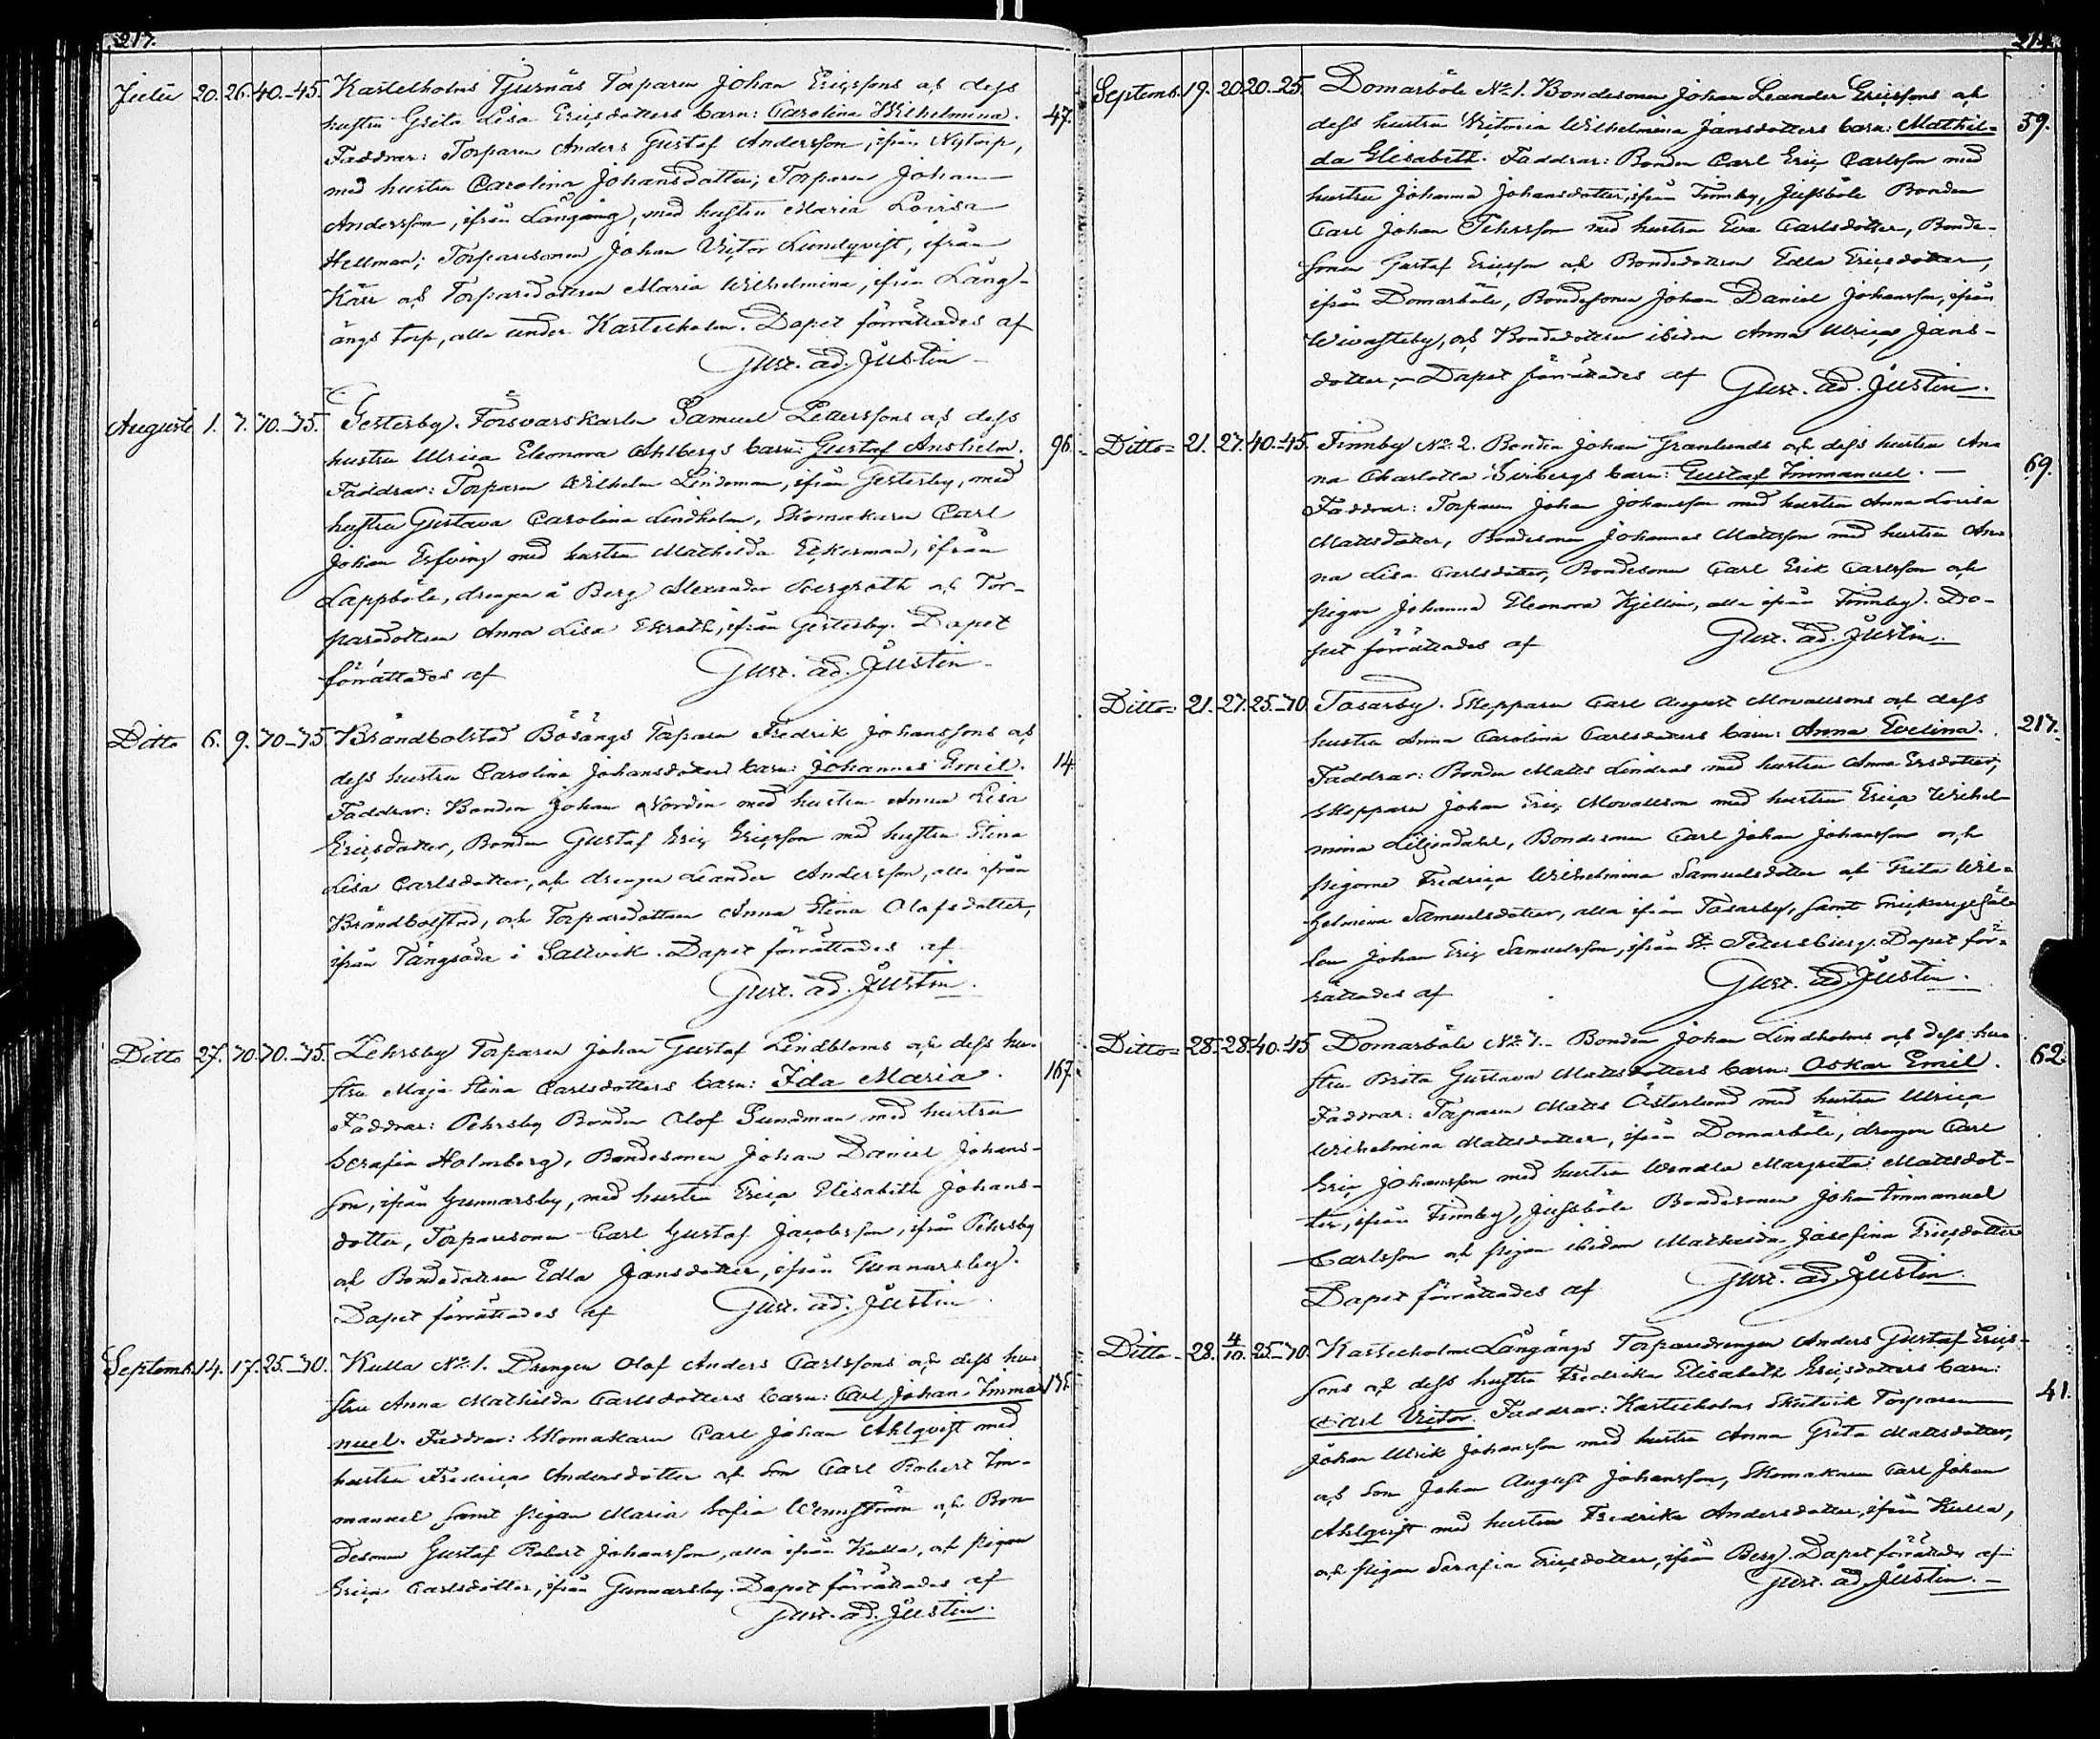 217.
Julii 20. 26. 40-45. Kastelholms Tjusnäs Torparen Johan Ericssons och dess
hustru Greta Lisa Ericsdotters barn: Carolina Wilhelmina. 47.
Faddrar: Torparen Anders Gustaf Andersson, ifrån Nytorp,
med hustru Carolina Johansdotter; Torparen Johan
Andersson, ifrån Långäng, med hustru Maria Lovisa
Hellman; Torparesonen Johan Victor Lundqvist, ifrån
Kärr och Torparedottren Maria Wilhelmina, ifrån Läng-
ängs torp, alla under Kastelholm. Dopet förrättades af
Gust. Ad. Justin
Augusti 1. 7. 70-75. Gesterby. Försvarskarlen Samuel Petterssons och dess
hustru Ulrica Eleonora Ahlbergs barn: Gustaf Anshelm. 96.
Faddrar: Torparen Wilhelm Lindeman, ifrån Gesterby, med
hustru Gustava Carolina Lindholm, Skomakaren Carl
Johan Elfving med hustru Mathilda Eckerman, ifrån
Lappböle, drengen å Berg Alexander Sbergroth och Tor-
paredottren Anna Lisa Ekroth, ifrån Gesterby. Dopet
förrättades af Gust. Ad. Justin
Ditto 6. 9. 70-75. Brändbolstad Bösängs Torparen Fredrik Johanssons och
dess hustru Carolina Johansdotters barn: Johannes Emil. 14.
Faddrar: Bonden Johan Nordin med hustru Anna Lisa
Ericsdotter, Bonden Gustaf Eric Ericsson med hustru Stina
Lisa Carlsdotter, och drengen Leander Andersson, alla ifrån
Brändbolstad, och Torparedottren Anna Stina Olofsdotter,
ifrån Tängsöda i Saltvik. Dopet förrättades af
Gust. Ad. Justin.
Ditto 27. 70. 70-75. Pehrsby Torparen Johan Gustaf Lindbloms och dess hu-
stru Maja Stina Carlsdotters barn: Ida Maria. 167.
Faddrar: Pehrsby Bonden Olof Sundman med hustru
Serafia Holmberg, Bondesonen Johan Daniel Johans-
son, ifrån Gunnarsby, med hustru Erica Elisabeth Johans-
dotter, Torparesonen Carl Gustaf Jacobsson, ifrån Pehrsby
och Bondedottren Edla Jansdotter, ifrån Gunnarsby.
Dopet förrättades af Gust. Ad. Justin
Septemb. 14. 17. 25-70. Kulla No. 1. Drengen Olof Anders Carlssons och dess hu-
stru Anna Mathilda Carlsdotters barn: Carl Johan Imma-
nuel. Faddrar: Skomakaren Carl Johan Ahlqvist med
hustru Fredrica Andersdotter och son Carl Robert Im-
manuel samt pigan Maria Sofia Wennström och Bon-
desonen Gustaf Robert Johansson, alla ifrån Kulla, och pigan
Erica Carlsdotter, ifrån Gunnarsby. Dopet förrättades af
Gust. Ad. Justin.
Septemb. 19. 20. 20-25. Domarböle No. 1. Bondesonen Johan Leander Ericssons och
dess hustru Victoria Wilhelmina Jansdotters barn: Mathil- 59.
da Elisabeth. Faddrar: Bonden Carl Eric Carlsson med
hustru Johanna Johansdotter, ifrån Finnby, Jussböle Bonden
Carl Johan Pehrsson med hustru Eva Carlsdotter, Bonde-
sonen Gustaf Ericsson och Bondedottren Edla Ericsdotter,
ifrån Domarböle, Bondesonen Johan Daniel Johansson, ifrån
Wivasteby, och Bondedottren ibidem Anna Ulrica Jans-
dotter. - Dopet förrättades af Gust. Ad. Justin.
Ditto 21. 27. 40-45. Finnby No. 2. Bonden Johan Granlunds och dess hustru An-
na Charlotta Sirbergs barn: Gustaf Immanuel. - 69.
Faddrar: Torparen Johan Johansson med hustru Anna Lovisa
Mattsdotter, Bondesonen Johannes Mattsson med hustru An-
na Lisa Carlsdotter, Bondesonen Carl Erik Carlsson och
pigan Johanna Eleonora Kjellin, alla ifrån Finnby. Do-
pet förrättades af Gust. Ad. Justin.
Ditto 21. 27. 25-70. Tosarby. Skepparen Carl August Movallsons och dess
hustru Anna Carolina Carlsdotters barn: Anna Evelina. 217.
Faddrar: Bonden Matts Lindros med hustru Anna Ersdotter,
Skepparen Johan Eric Movallson med hustru Erica Wilhel-
mina Liljendahl, Bondesonen Carl Johan Johansson och
pigorne Fredrica Wilhelmina Samuelsdotter och Greta Wil-
helmina Samuelsdotter, alla ifrån Tosarby, samt Snickaregesäl-
len Johan Eric Samuelsson, ifrån St. Petersburg. Dopet för-
rättades af Gust. Ad. Justin.
Ditto 28. 28. 40-45. Domarböle No. 7. Bonden Johan Lindholms och dess hu-
stru Brita Gustava Mattsdotters barn: Oskar Emil. 62.
Faddrar: Torparen Matts Österlund med hustru Ulrica
Wilhelmina Mattsdotter, ifrån Domarböle, drengen Carl
Eric Johansson med hustru Wendla Margreta Mattsdot-
ter, ifrån Finnby, Jussböle Bondesonen Johan Immanuel
Carlsson och pigan ibidem Mathilda Josefina Ericsdotter
Dopet förrättades af Gust. Ad. Justin.
Ditto 28. 4/10. 25-70. Kastelholms Långängs Torparedrengen Anders Gustaf Erics-
sons och dess hustru Fredrika Elisabeth Ericsdotters barn:
Carl Victor. Faddrar: Kastelholms Slutvik Torparen 41.
Johan Ulrik Johansson med hustru Anna Greta Mattsdotter,
och son Johan August Johansson, Skomakaren Carl Johan
Ahlqvist med hustru Fredrika Andersdotter, ifrån Kulla,
och pigan Serafia Ericsdotter, ifrån Berg. Dopet förrättades af
Gust. Ad. Justin. -